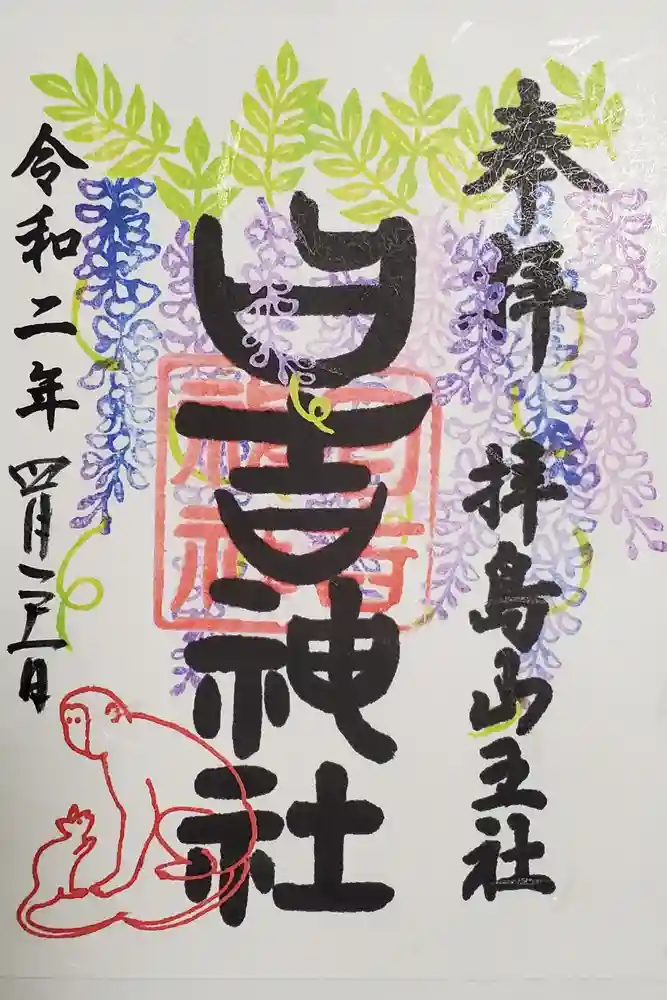 奉拝　拝島山王社
日吉神社
日吉
神社
令和二年四月